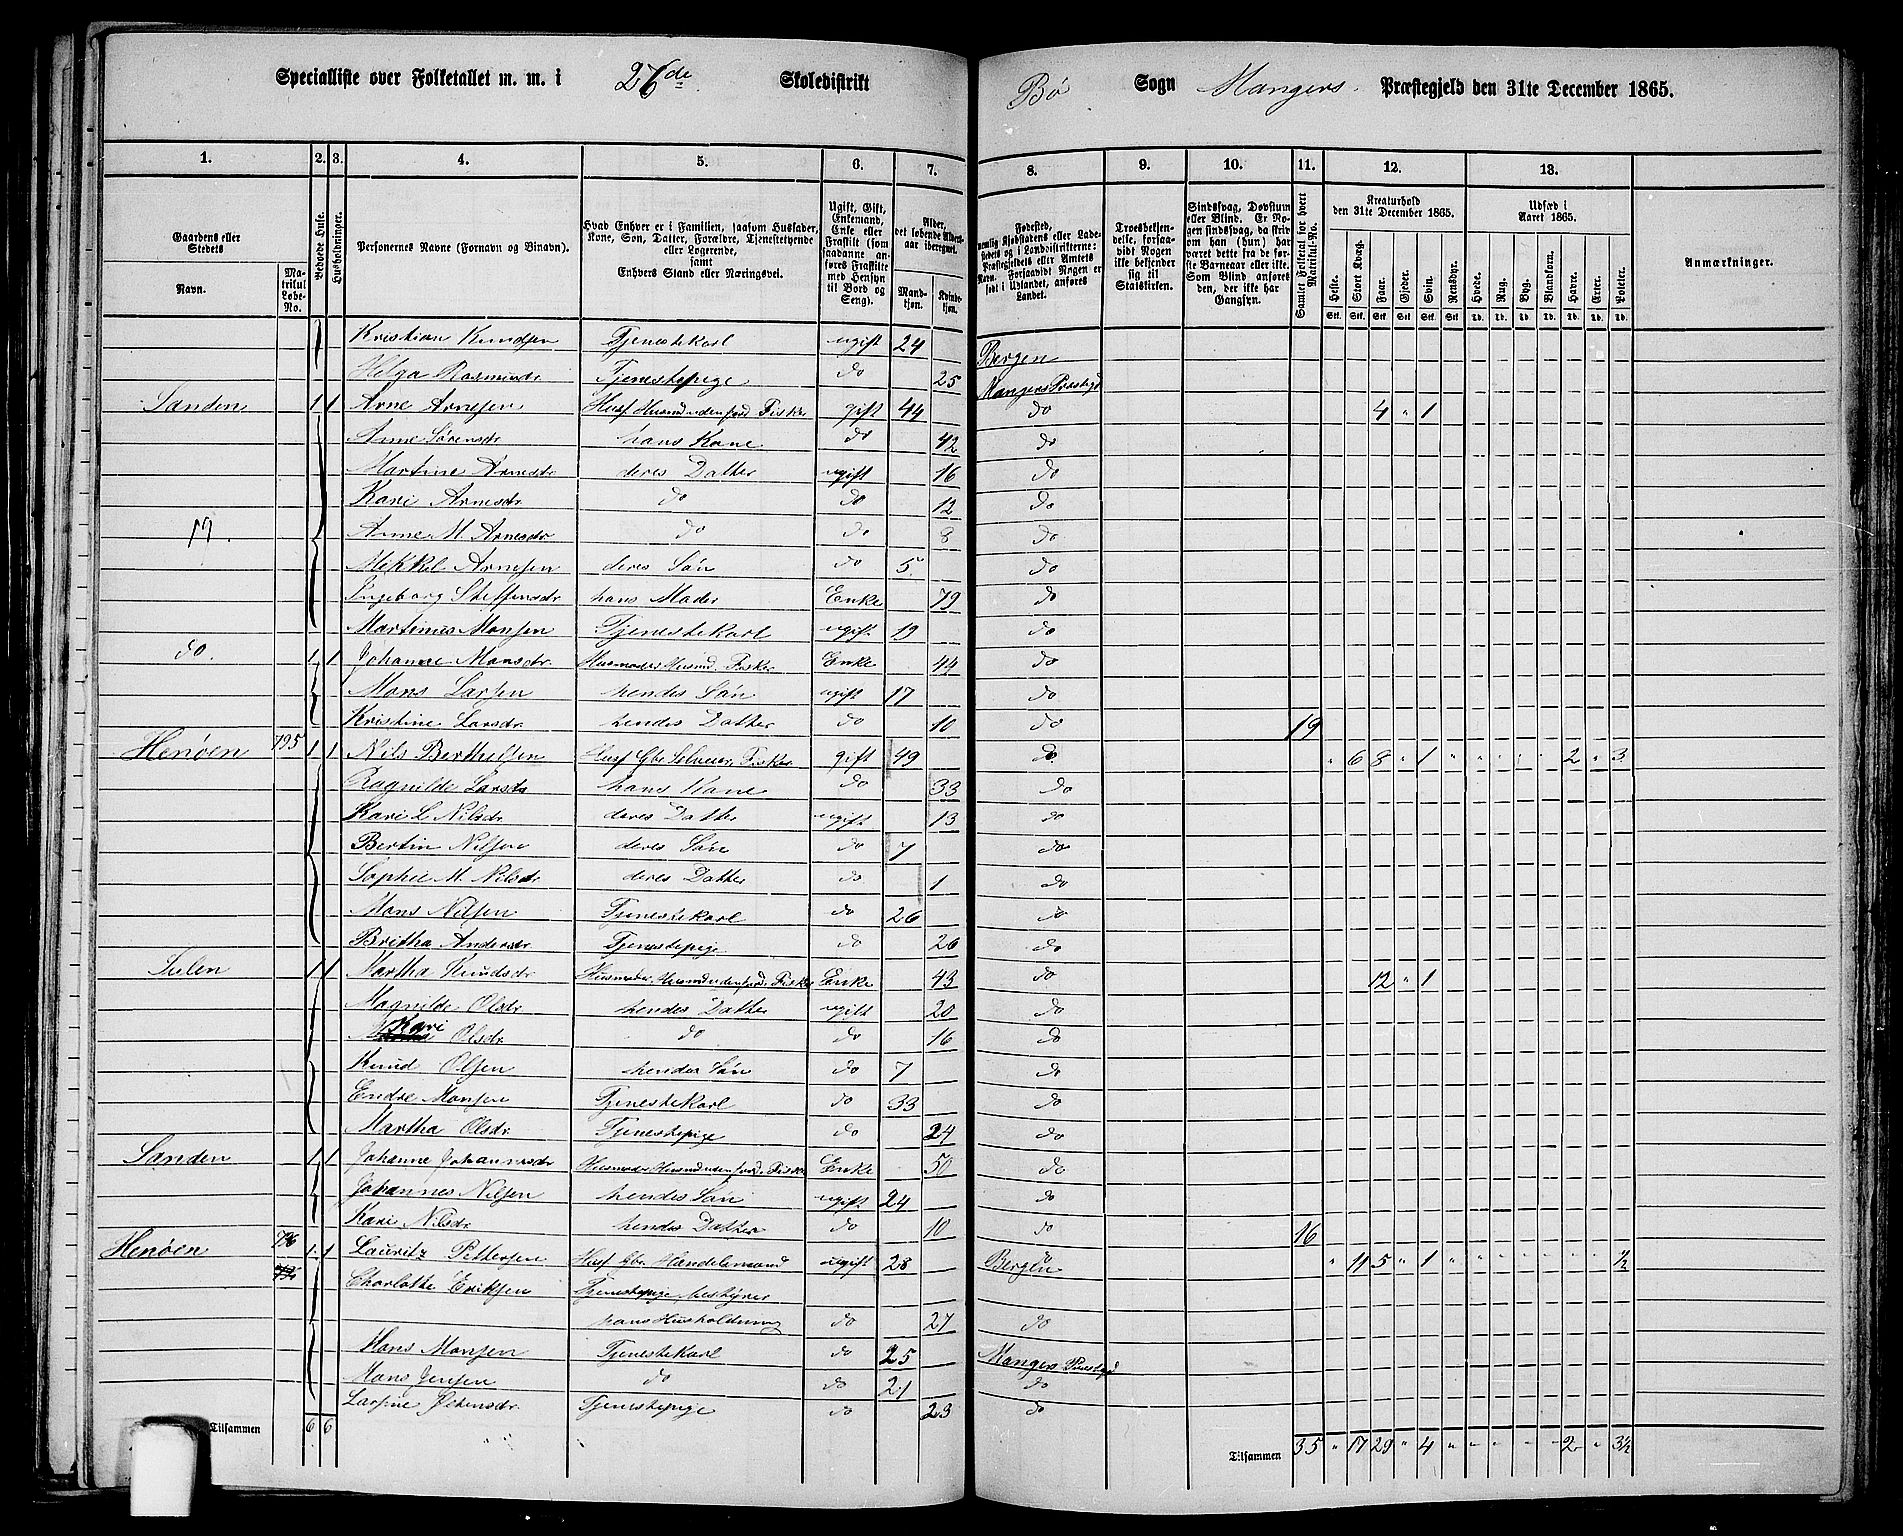 Specialliste over Folketallet m. m. i 26de Skoledistrikt Bø Sogn Mangers Præstegjeld den 31te December 1865.
1. 2. 3. 4. 5. 6. 7. 8. 9. 10. 11. 12. 13.
Gaardens eller Stedets Navn. Matrikul Løbe-No. Beboede Huse. Husholdninger. Personernes Navne (Fornavn og Binavn). Hvad Enhver er i Familien, saasom Husfader, Kone, Søn, Datter, Forældre, Tjenstetyende eller Logerende, samt Enhvers Stand eller Næringsvei. Ugift, Gift, Enkemand, Enke eller Fraskilt (som saadanne anføres Fraskilte med Hensyn til Bord og Seng). Alder, det løbende Aldersaar iberegnet. Mandkjøn. Kvindekjøn.
Fødested, nemlig Kjøbstadens eller Ladestedets og i Landdistrikterne: Præstegjeldets eller Amtets Navn. Forsaavidt Nogen er født i Udlandet, anføres Landet. Troesbekjendelse, forsaavidt Nogen ikke bekjender sig til Statskirken. Sindssvag, Døvstum eller Blind. Er Nogen sindssvag, da skrives om han (hun) har været dette fra de første Barneaar eller ikke. Som Blind anføres den, der ikke har Gangsyn. Samlet Folketal for hvert Matrikul-No. Kreaturhold den 31te December 1865. Udsæd i Aaret 1865. Anmærkninger.
Heste. Stort Kvæg. Faar. Gjeder. Svin. Rensdyr. Hvede. Rug. Byg. Blandkorn. Havre. Erter. Poteter.
Kristian Knudsen Tjenestekarl ugift 24 Bergen
Helga Rasmusdr Tjenestepige do 25 Mangers Præstegd
Sanden 1 1 Arne Arnesen Husf Husmd uden Jord Fisker gift 44 do 4 " 1
Anne Sørensdr hans Kone do 42 do
Martine Arnesdr deres Datter ugift 16 do
Kari Arnesdr do do 12 do
17. Anne M. Arnesdr do do 8 do
Mikkel Arnesen deres Søn do 5 do
Ingeborg Steffensdr hans Moder Enke 79 do
Martinus Monsen Tjenestekarl ugift 19 do
do. 1 1 Johanne Monsdr Husmoder Husmd. Fisker Enke 44 do
Mons Larsen hendes Søn ugift 17 do
Kristine Larsdr hendes Datter do 10 do 19
Henøen 795 1 1 Nils Berthelsen Husf Gbr Selveier, Fisker gift 49 do " 6 8 " 1 " " " " " 2 " 3
Ragnilde Larsdr hans Kone do 33 do
Kari L Nilsdr deres Datter ugift 13 do
Bertin Nilsen deres Søn do 7 do
Sophie M. Nilsdr deres Datter do 1 do
Mons Nilsen Tjenestekarl do 26 do
Britha Andersdr Tjenestepige do 26 do
Julen 1 1 Martha Knudsdr Husmoder, Husmd uden Jord, Fisker Enke 43 do 12 " 1
Magnilde Olsdr hendes Datter ugift 20 do
Kari Olsdr do do 16 do
Knud Olsen hendes Søn do 7 do
Endre Monsen Tjenestekarl do 33 do
Martha Olsdr Tjenestepige do 24 do
Sanden 1 1 Johanne Johannesdr Husmoder Husmd uden Jord. Fisker Enke 50 do
Johannes Nilsen hendes Søn ugift 24 do
Kari Nilsdr hendes Datter do 10 do 16
Henøen 796 1 1 Lauritz Pettersen Husf Gbr Handelsmand ugift 28 Bergen " 11 5 " 1 " " " " " " " ½
Charlotte Eriksen Tjenestepige bestyrer
hans Husholdning do 27 do
Hans Monsen Tjenestekarl do 25 Mangers Præstegd
Mons Jensen do do 21 do
Larsine Petersdr Tjenestepige do 23 do
Tilsammen 6 6 Tilsammen 35 " 17 29 " 4 " " " " " 2 " 3½